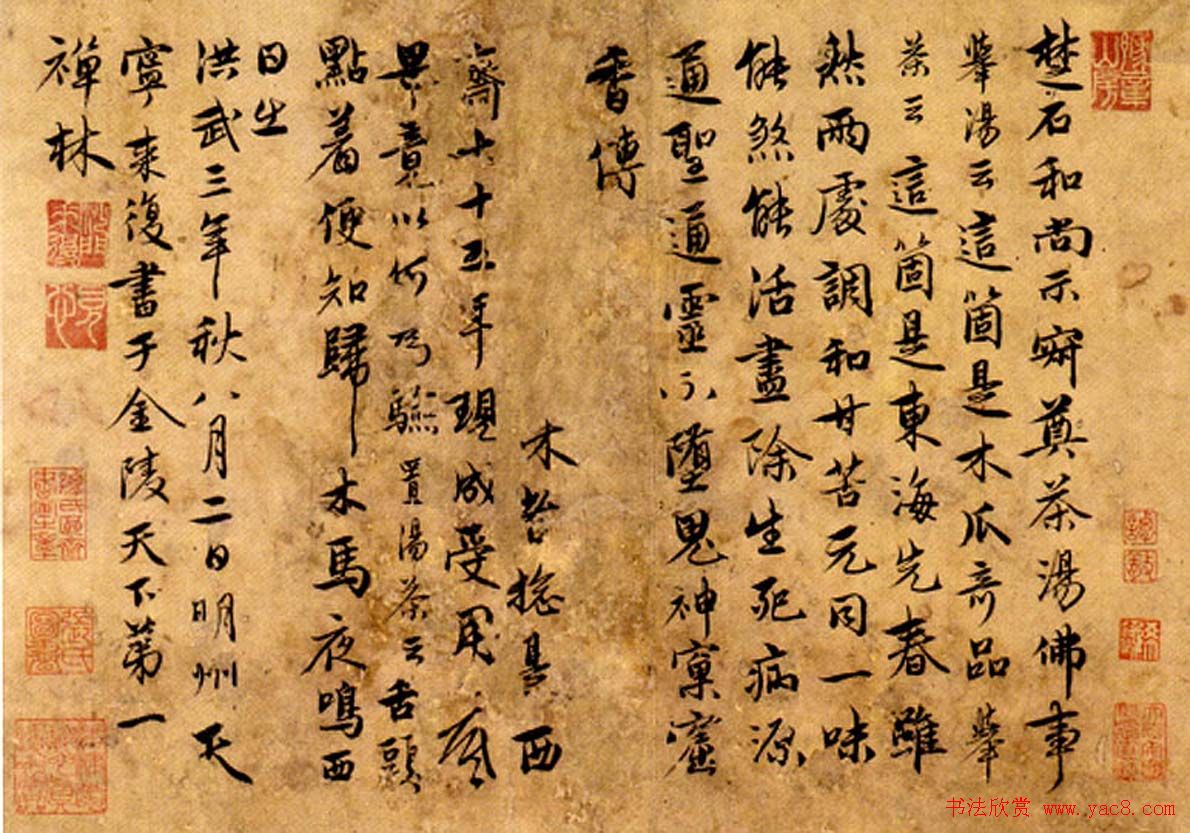 楚石和尚示寂奠茶湯佛事
擧湯云這箇是木瓜奇品擧
茶云這箇是東海先春雖
然兩處調和甘苦元同一味
能煞能活盡除生死病源
通聖通靈不墮鬼神窠窟
香傳
木 揔是西
齋七十五年現成受用底
畢竟以何為驗置湯茶云舌頭
點着便知歸木馬夜鳴西
日出
洪武三年秋八月二日明州天
寧来復書于金陵天下第一
禪林
书法欣赏 www.yac8.com